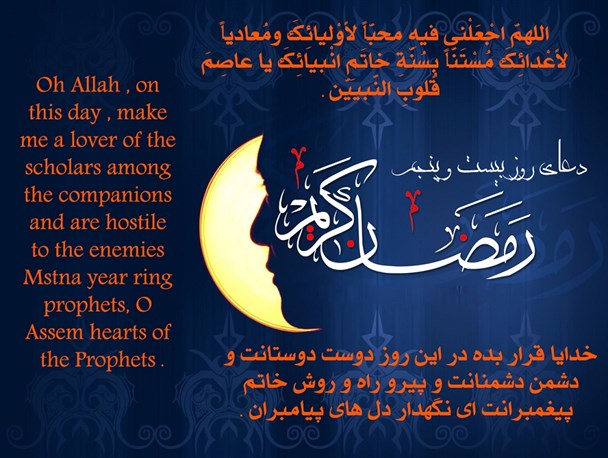 اللهمّ اجْعَلْني فيهِ محبّاً لأوْليائِكَ ومُعادياً
لأعْدائِكَ مُسْتَنّاً بِسُنّةِ خاتَمِ انْبيائِكَ يا عاصِمَ
قُلوبِ النّبیینَ .
Oh Allah , on
this day , make
me a lover of the
scholars among
the companions
and are hostile
to the enemies
Mstna year ring
prophets, O
Assem hearts of
the Prophets .
دعای روز بیست و پنجم
رَمَضَان كَرِيْم
خدایا قرار بده در این روز دوست دوستانت و
دشمن دشمنانت و پیرو راه و روش خاتم
پیغمبرانت ای نگهدار دل های پیامبران .